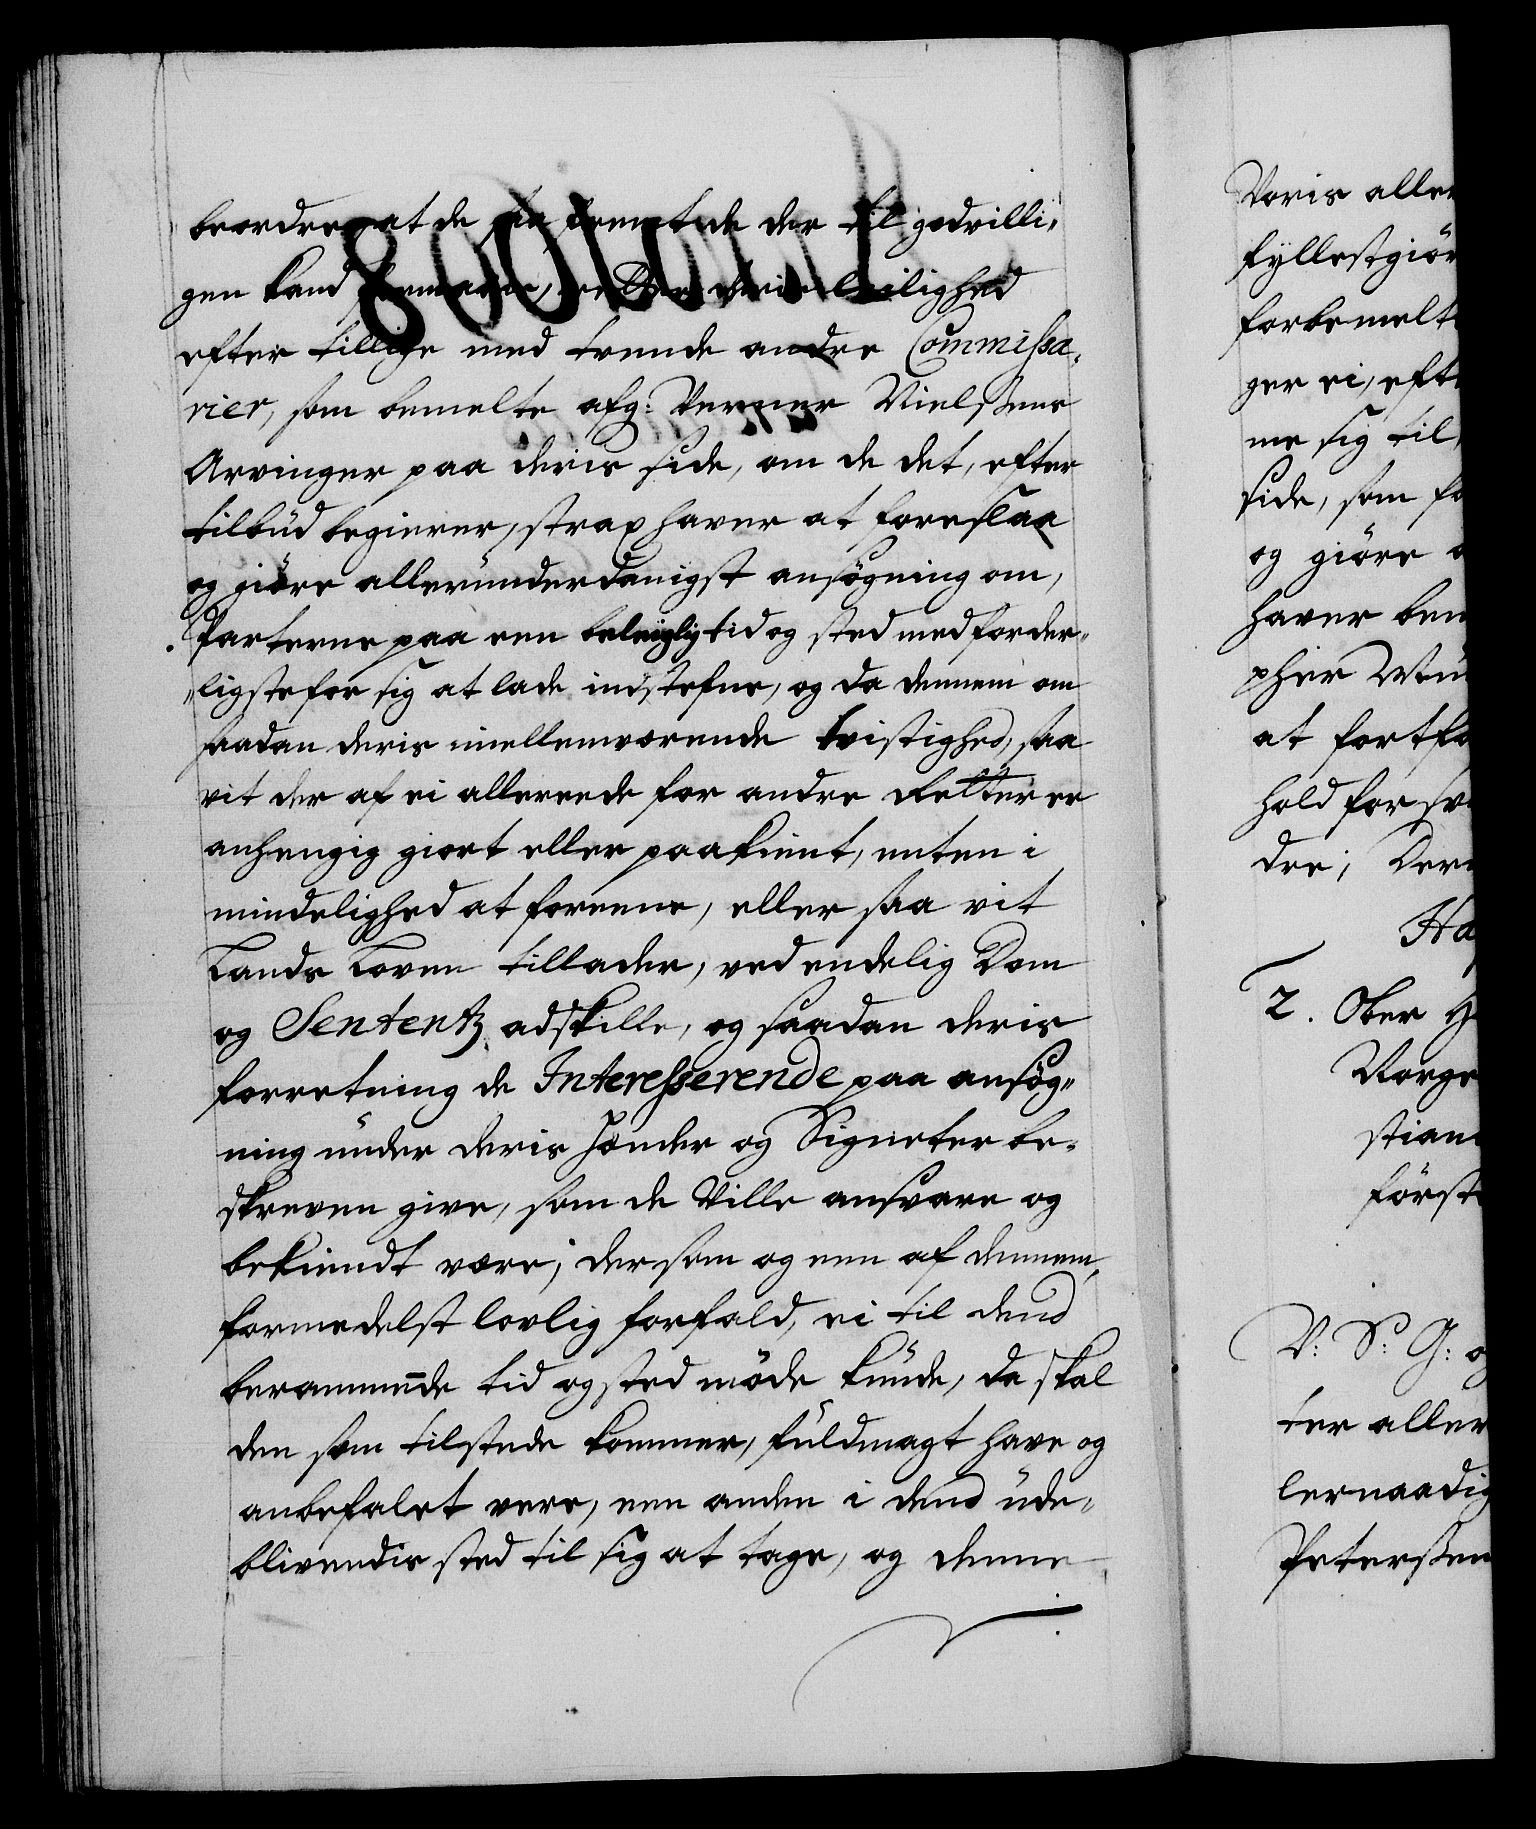 beordre, at de saafremt de der til godvilli-
gen kand formaaes, ret deris leilighed
efter tillige med tvende andre Commissa-
rier, som bemelte afg: Verner Nielssens
Arvinger paa deris side, om de det, efter
tilbud begierer, strax haver at foreslaa
og giöre allerunderdanigst ansögning om,
Parterne paa een beleiglig tid og sted med forder-
ligste for sig at lade indstefne, og da dennem om
saadan deris imellemværende tvistighed, saa
vit der af ei allerede for andre Retter er
anhengig giort eller paakient, enten i
mindelighed at foreene, eller saa vit
Lands Loven tillader, ved endelig Dom
og Sententz adskille, og saadan deris
forretning de Interesserende paa ansög-
ning under deris hænder og Signeter be-
skreven give, som de ville ansvare og
bekiendt være; dersom og een af dennem,
formedelst lovlig forfald, ei til dend
berammede tid og sted möde kunde, da skal
den som tilstede kommer, fuldmagt have og
anbefalet være, een anden i dend ude-
blivendis sted til sig at tage, og denne
Voris aller
fyllestgiör
forbemelt
ger ei, eft
me sig til,
side, som fo
og giöre
haver bem
at fortf
hold for
dre; Der
2. Ober H
Norge
stian
först
V: S: G: o
ter aller
lernaadig
Peterssen